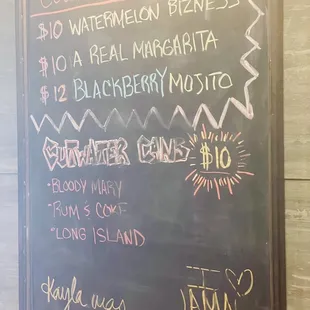 $10 WATERMELON BIZNESS
$10 A REAL MARGARITA
$12 BLACKBERRY MOJITO
CUTWATER CANS $10
• BLOODY MARY
• RUM & COKE
• LONG ISLAND
Kayla was I ♡
JAMN